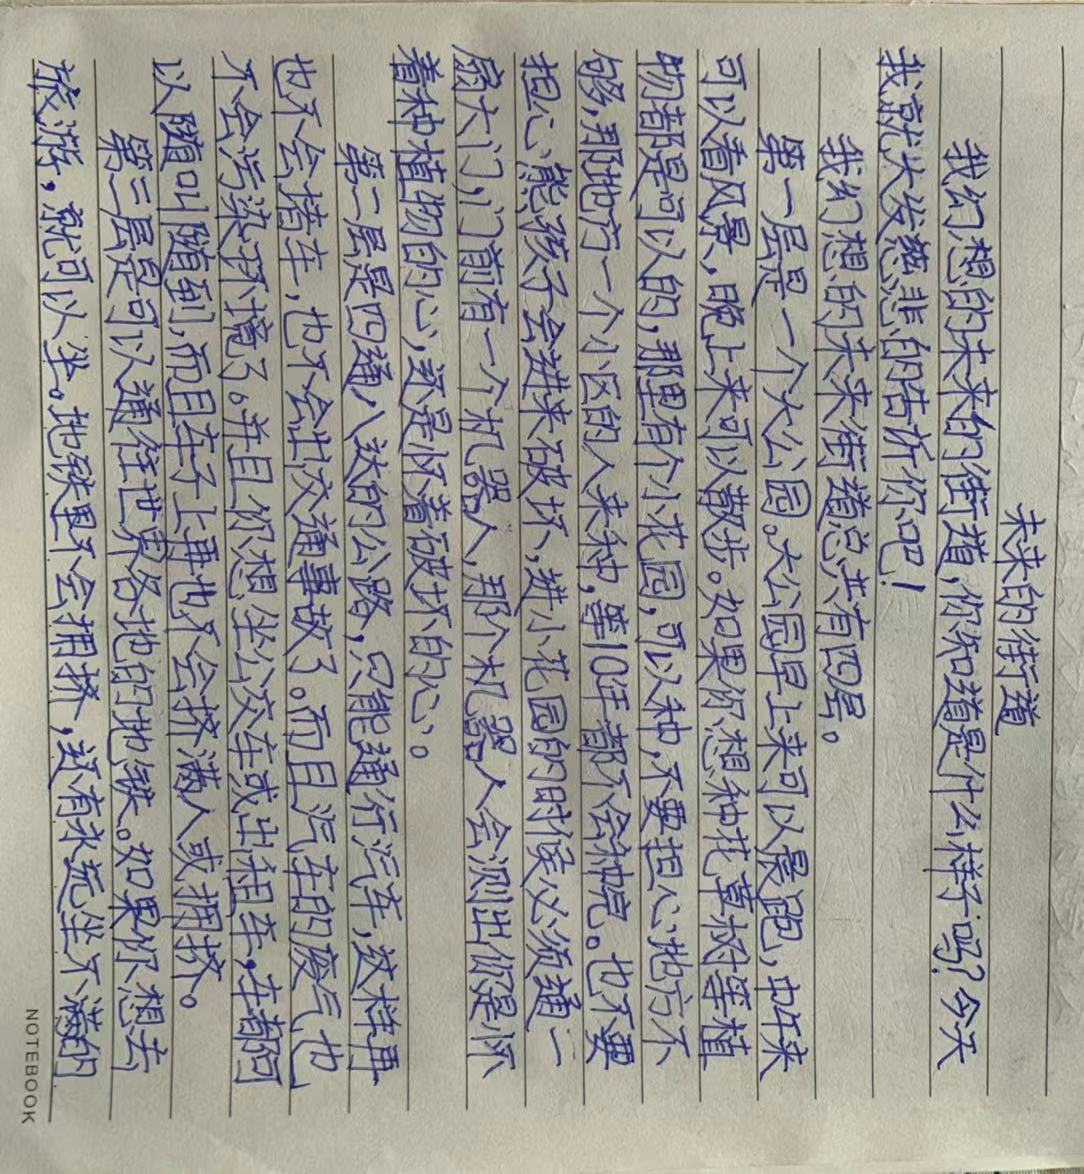 未来的街道
我们想的未来的街道,你知道是什么样子吗?今天
我就大发慈悲的告诉你吧!
我们想的未来街道总共有四层。
第一层是一个大公园。大公园早上来可以晨跑,中午来
可以看风景,晚上来可以散步。如果你想种花草树等植
物都是可以的,那里有个小花园,可以种,不要担心地方不
够,那地方一个小区的人来种,等10年都不会种完。也不要
担心熊孩子会进来破坏,进小花园的时候必须通一
扇大门,门前有一个机器人,那个机器人会测出你是怀
着种植物的心,还是怀着破坏的心。
第二层是四通八达的公路,只能通行汽车,这样再
也不会堵车,也不会出交通事故了。而且汽车的废气也
不会污染环境了。并且你想坐公交车或出租车,车都可
以随叫随到,而且车子上再也不会挤满人或拥挤。
第三层是可以通往世界各地的地铁。如果你想去
旅游,就可以坐。地铁里不会拥挤,还有永远坐不满的
NOTEBOOK